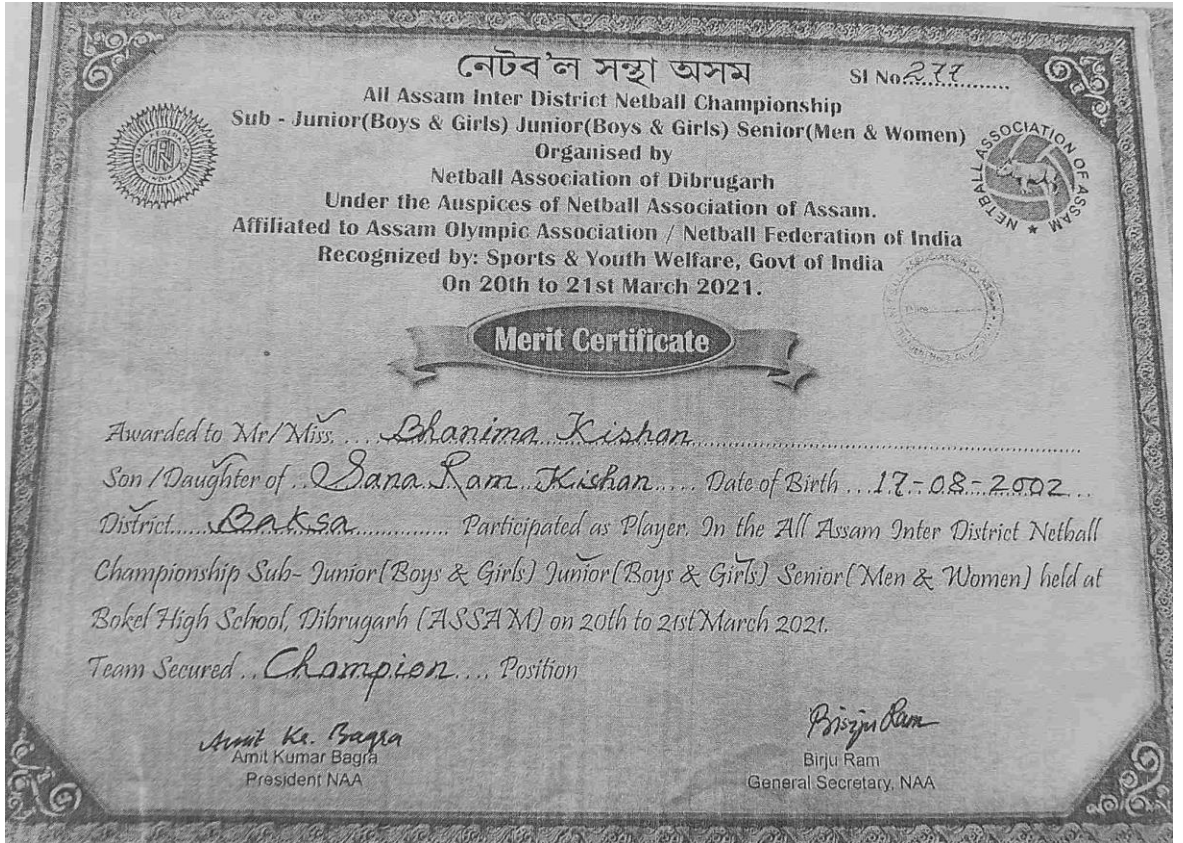 নেটব'ল সন্থা অসম
Sl No 277
All Assam Inter District Netball Championship
Sub - Junior(Boys & Girls) Junior(Boys & Girls) Senior(Men & Women)
Organised by
Netball Association of Dibrugarh
Under the Auspices of Netball Association of Assam.
Affiliated to Assam Olympic Association / Netball Federation of India
Recognized by: Sports & Youth Welfare, Govt of India
On 20th to 21st March 2021.
NETBALL ASSOCIATION OF ASSAM
Merit Certificate
Awarded to Mr/Miss. ... Bhanima Kishan
Son / Daughter of .. Sana Ram Kishan ..... Date of Birth ... 17-08-2002 ...
District..... Baksa ................ Participated as Player. In the All Assam Inter District Netball
Championship Sub- Junior(Boys & Girls) Junior(Boys & Girls) Senior(Men & Women) held at
Bokel High School, Dibrugarh (ASSAM) on 20th to 21st March 2021.
Team Secured .. Champion .... Position
Amit Kr. Bagra
Amit Kumar Bagra
President NAA
Birju Ram
Birju Ram
General Secretary, NAA